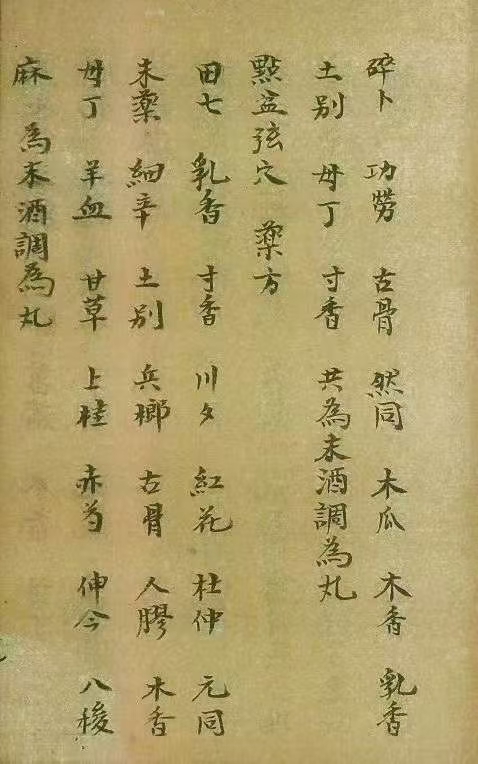 碎卜 功勞 古骨 然同 木瓜 木香 乳香
土别 母丁 寸香 共為末酒調為丸
點盆弦穴 藥方
田七 乳香 寸香 川夕 紅花 杜仲 元同
末藥 細辛 土别 兵榔 古骨 人膠 木香
母丁 羊血 甘草 上桂 赤芍 伸今 八稜
麻 為末酒調為丸